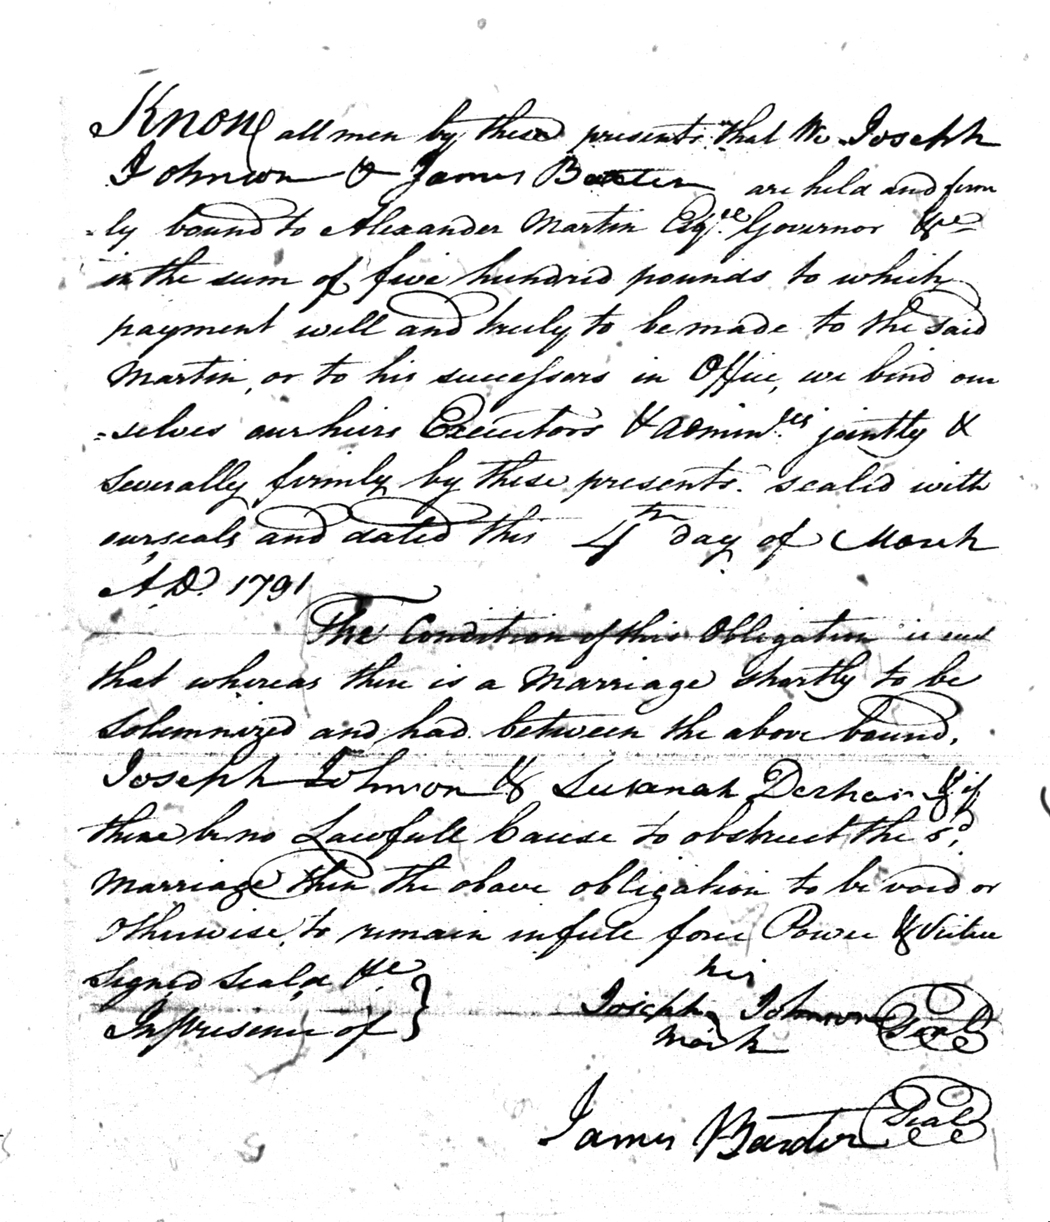 Know all men by these presents that We Joseph
Johnson & James Baxter are held and firm
=ly bound to Alexander Martin Esqr. Governor &c
in the sum of five hundred pounds to which
payment well and truly to be made to the said
Martin, or to his successors in Office, we bind our
=selves our heirs Executors & Admin.rs jointly &
severally firmly by these presents. sealed with
our seals and dated this 4th day of March
A.D. 1791
The Condition of this Obligation is such
that whereas there is a Marriage shortly to be
Solemnized and had between the above bound,
Joseph Johnson & Susanah & if
there be no Lawfull Cause to obstruct the sd.
Marriage then the above obligation to be void or
otherwise to remain in full force Power & Virtue
Signed Seald &c
In prisence of
his
Joseph Johnson Seal
mark
James Baxter Seal